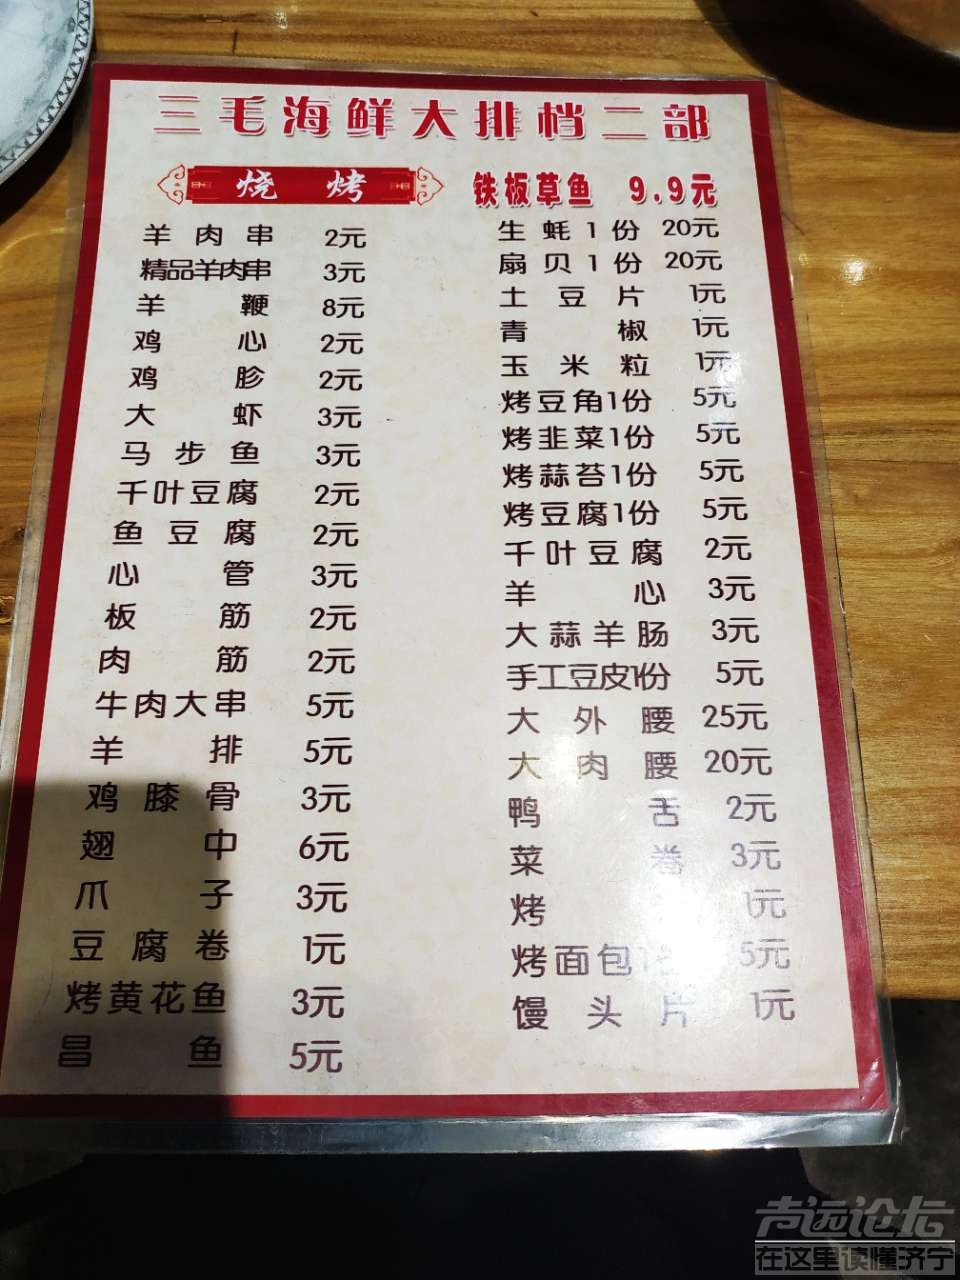 三毛海鲜大排档二部
烧烤
羊肉串 2元
精品羊肉串 3元
羊鞭 8元
鸡心 2元
鸡胗 2元
大虾 3元
马步鱼 3元
千叶豆腐 2元
鱼豆腐 2元
心管 3元
板筋 2元
肉筋 2元
牛肉大串 5元
羊排 5元
鸡膝骨 3元
翅中 6元
爪子 3元
豆腐卷 1元
烤黄花鱼 3元
昌鱼 5元
铁板草鱼 9.9元
生蚝1份 20元
扇贝1份 20元
土豆片 1元
青椒 1元
玉米粒 1元
烤豆角1份 5元
烤韭菜1份 5元
烤蒜苔1份 5元
烤豆腐1份 5元
千叶豆腐 2元
羊心 3元
大蒜羊肠 3元
手工豆皮1份 5元
大外腰 25元
大肉腰 20元
鸭舌 2元
菜卷 3元
烤 1元
烤面包1 5元
馒头片 1元
声远论坛
在这里读懂济宁